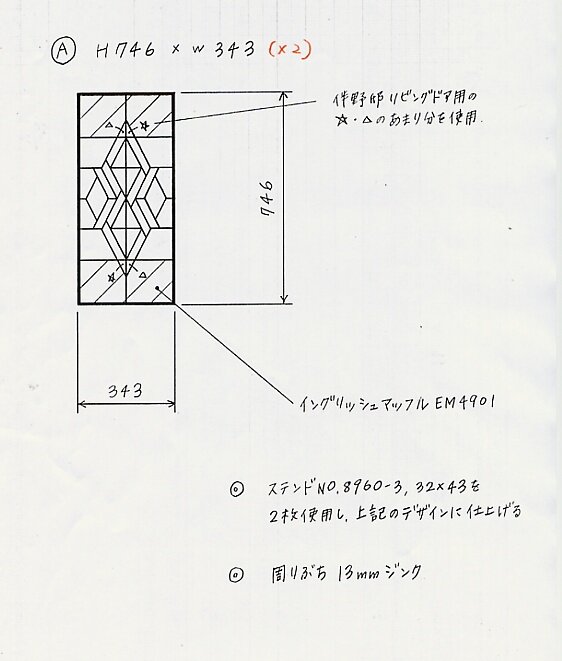 Ⓐ H746 × W343 (×2)
伴野邸リビングドア用の
☆・△のあまり分を使用.
△ ☆
746
☆ △
343
イングリッシュマッフル EM4901
◎ ステンドNO.8960-3, 32×43を
2枚使用し, 上記のデザインに仕上げる
◎ 周りぶち 13mmジンク